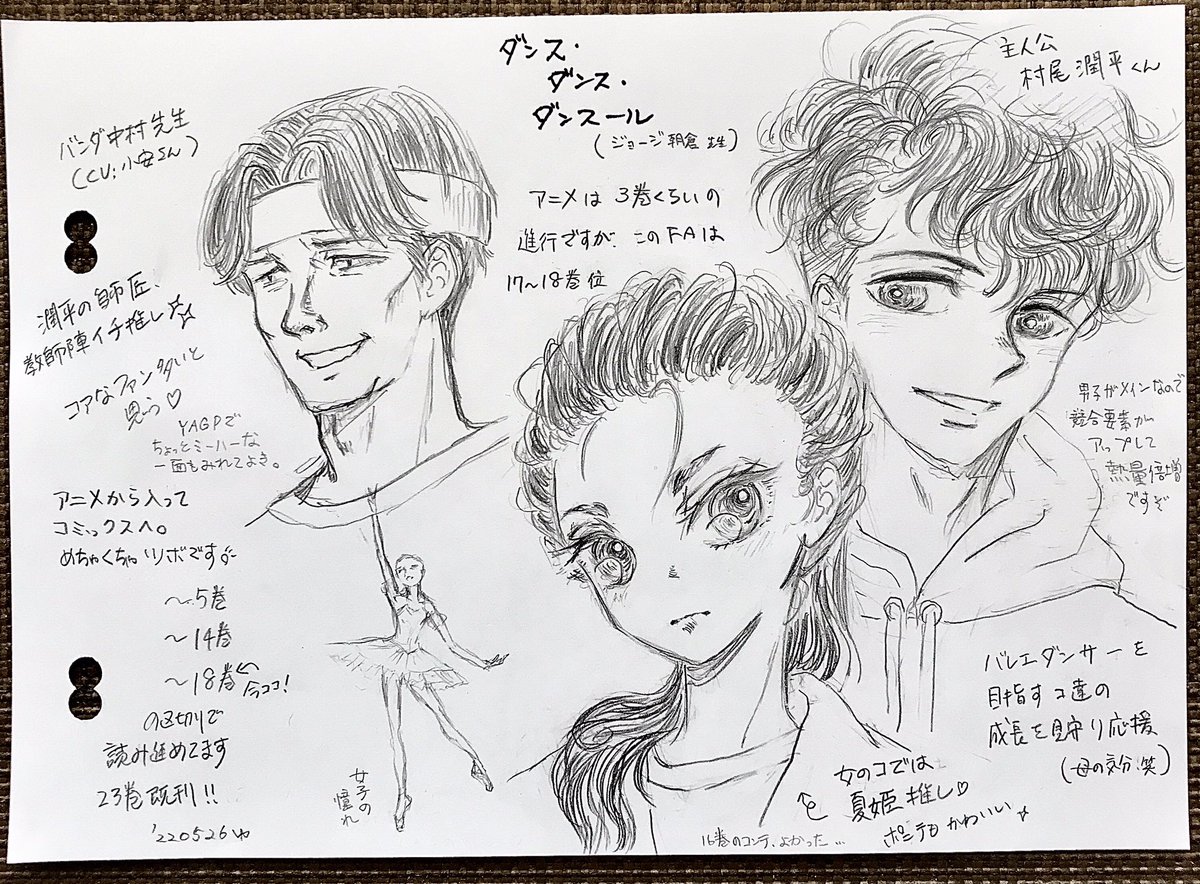 ダンス・
ダンス・
ダンスール
(ジョージ朝倉先生)
アニメは3巻くらいの
進行ですが、このFAは
17〜18巻位
主人公
村尾潤平くん
バンダ中村先生
(CV;小安さん)
潤平の師匠、
教師陣イチ推し☆
コアなファン多いと
思う♡
YAGPで
ちょっとミーハーな
一面もみれてよき。
アニメから入って
コミックスへ。
めちゃくちゃリボです
〜5巻
〜14巻
〜18巻←今ココ!
の区切りで
読み進めてます
23巻既刊!!
'220526
女子の
憧れ
男子がメインなので
競合要素が
アップして
熱量倍増
ですぞ
バレエダンサーを
目指すコ達の
成長を見守り応援
(母の気分、笑)
女のコでは
夏姫推し♡
ポニテもかわいい☆
16巻のコンテ、よかった…